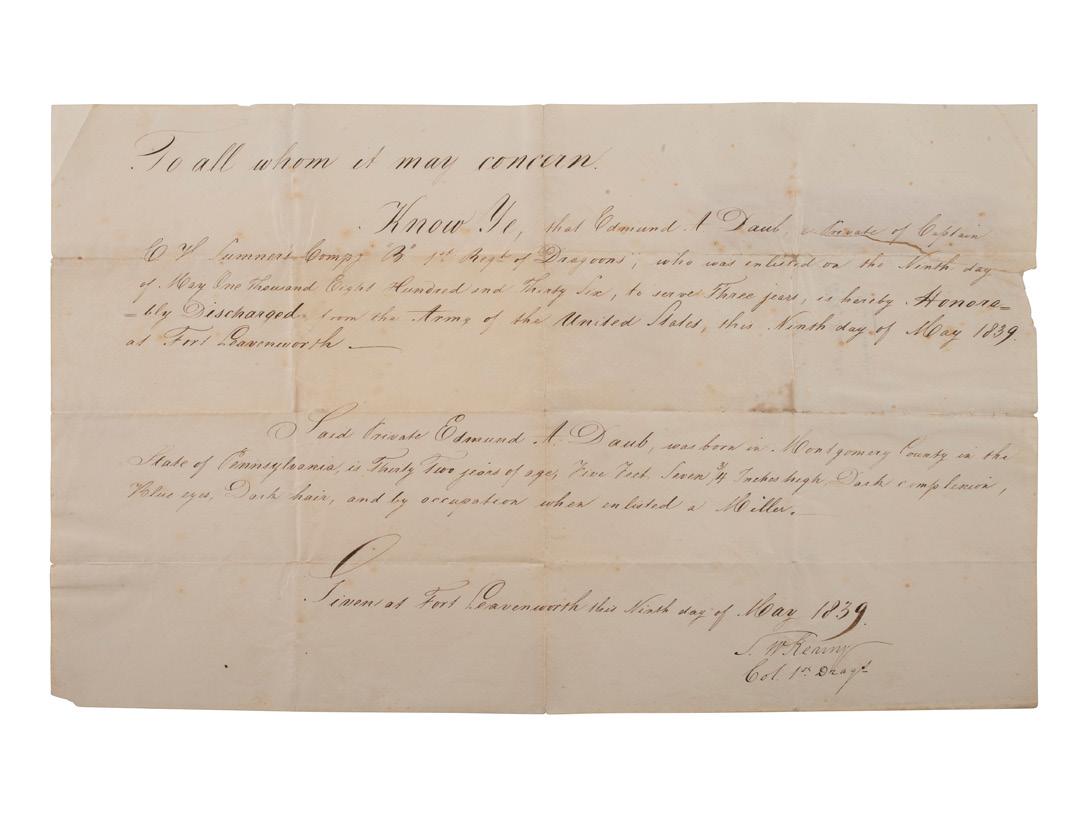 To all whom it may concern.
Know Ye, that Edmund A Daub, a Private of Captain
E V Sumner's Compy "B" 1st Regt of Dragoons, who was enlisted on the Ninth day
of May One Thousand Eight Hundred and Thirty Six, to serve Three years, is hereby Honora=
=bly Discharged from the Army of the United States, this Ninth day of May 1839.
at Fort Leavenworth —
Said Private Edmund A. Daub, was born in Montgomery County in the
State of Pennsylvania, is Thirty Two years of age, Five Feet Seven 3/4 Inches high, Dark complexion,
Blue eyes, Dark hair, and by occupation when enlisted a Miller. —
Given at Fort Leavenworth this Ninth day of May 1839.
S. W Kearny
Col. 1st Drags